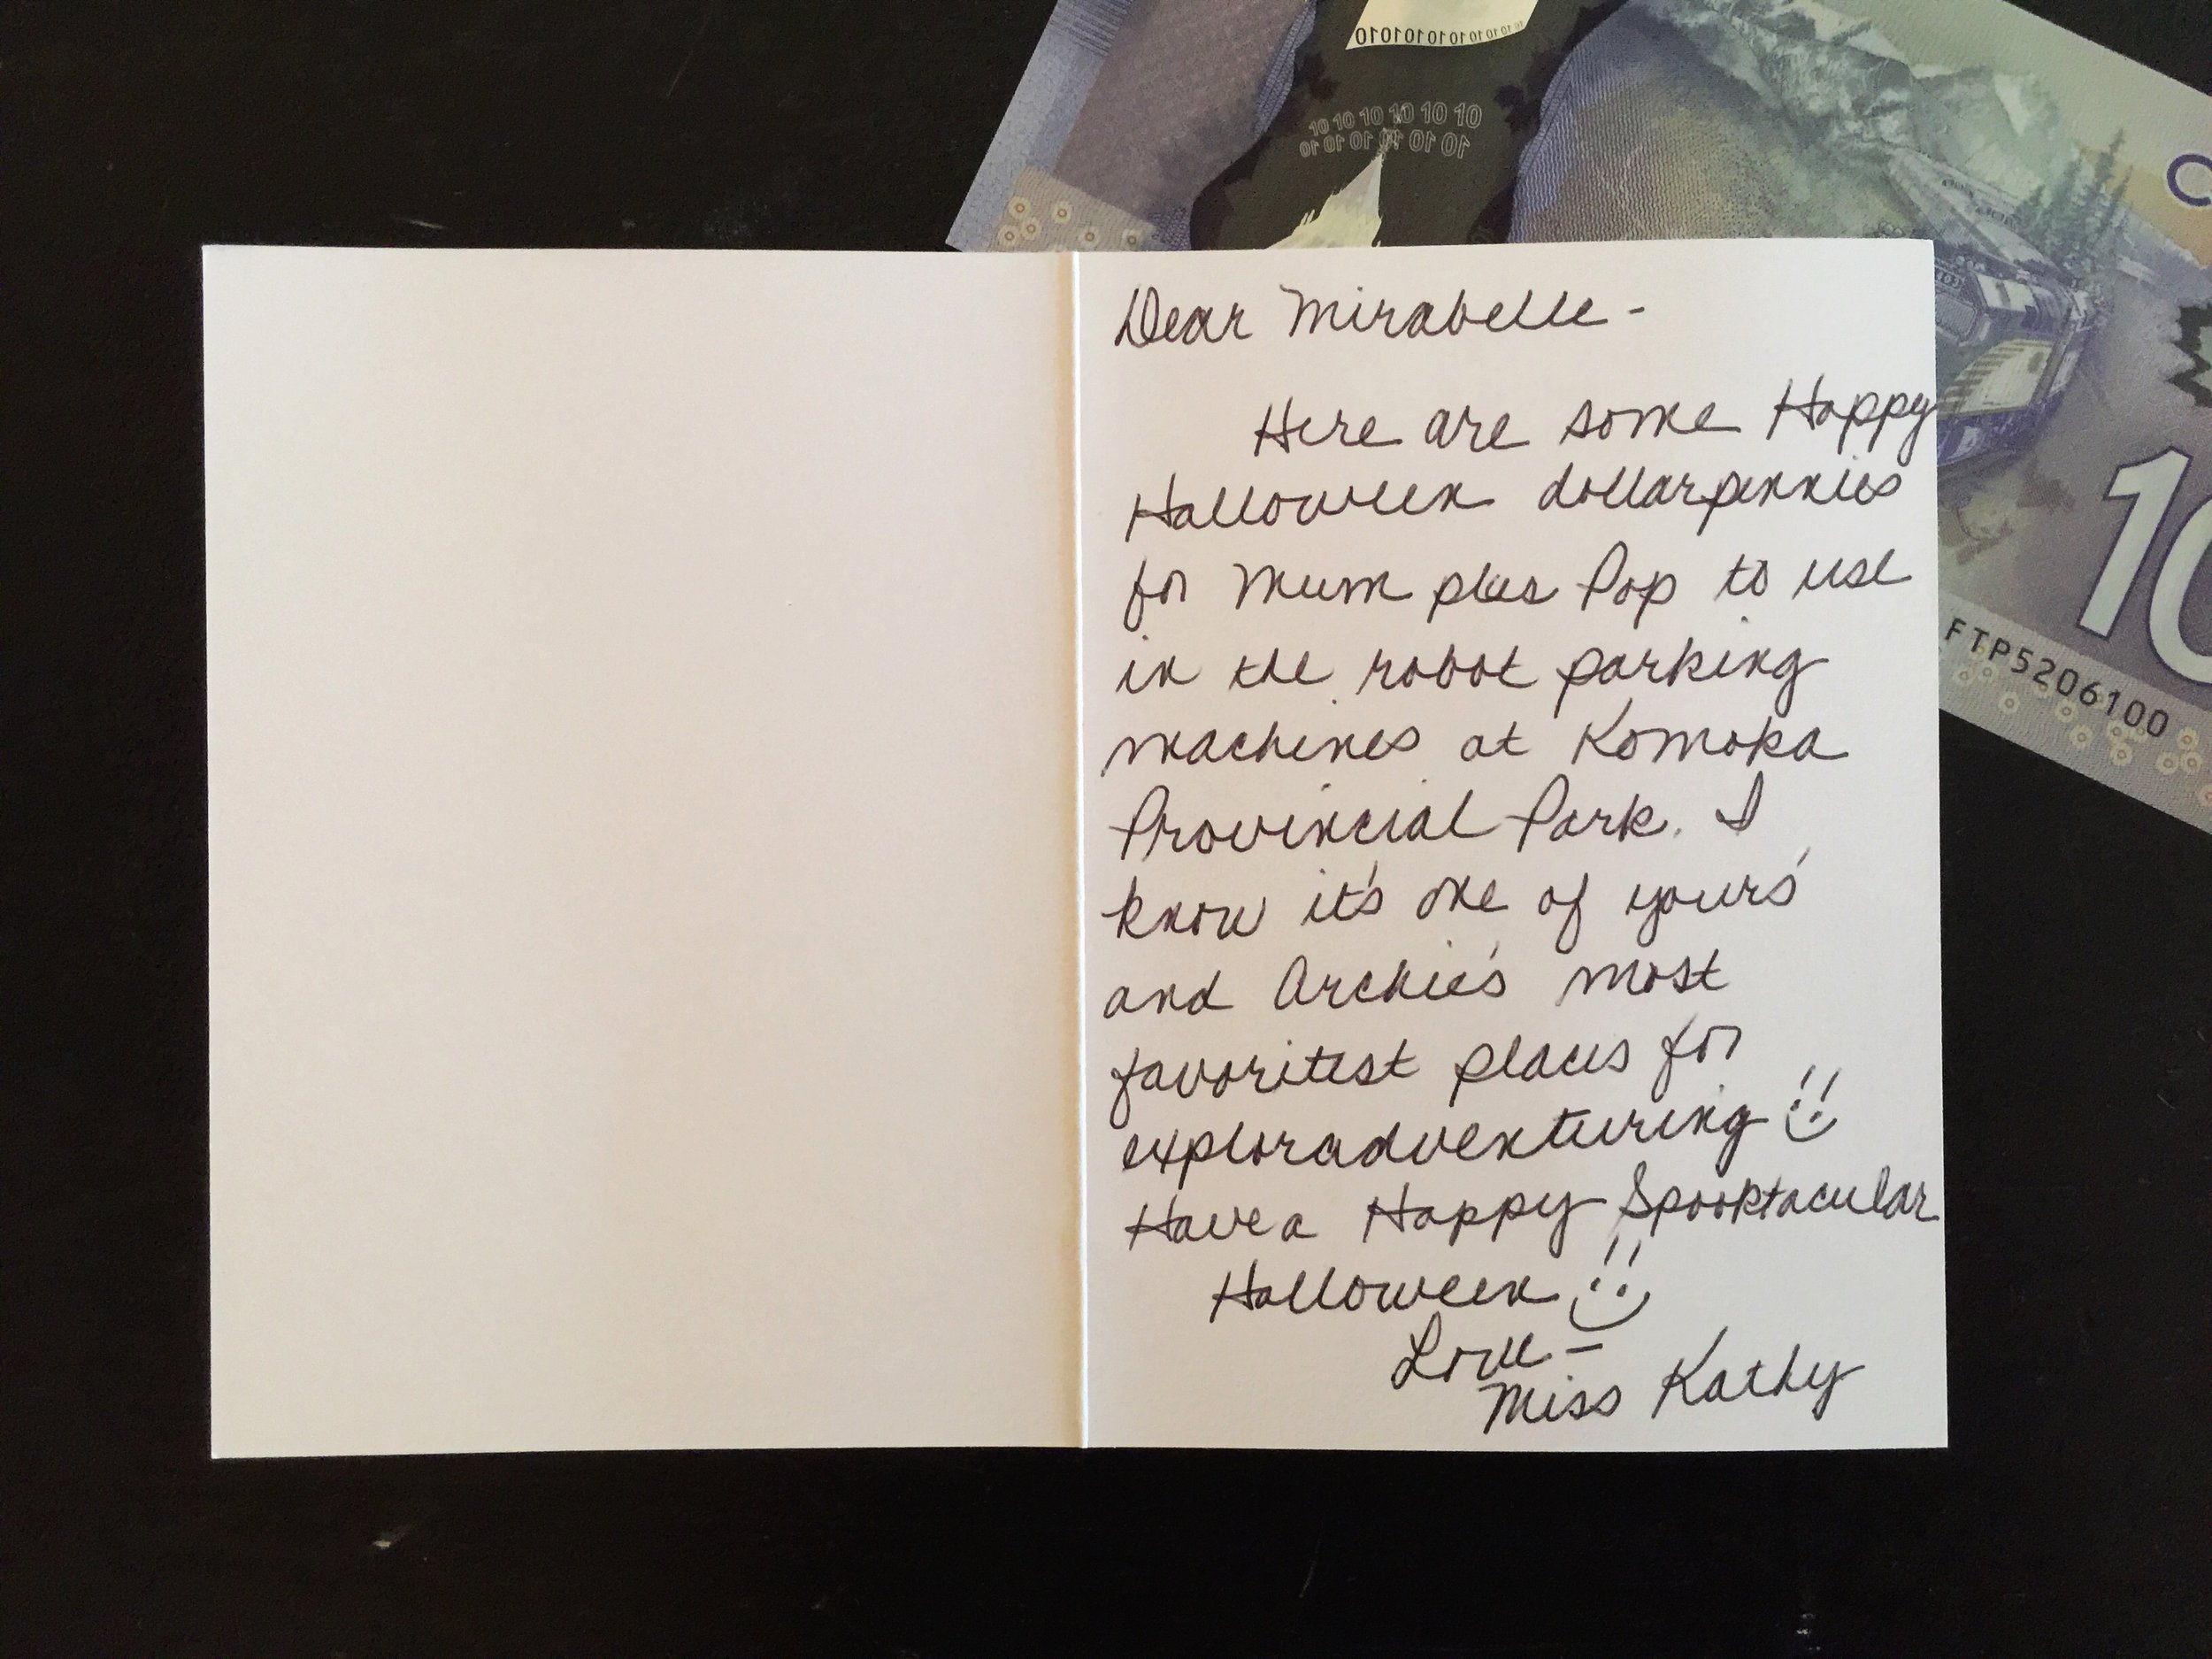 1010101010101010
10 10 10 10 10 10
10 10 10 10 10 10
10
FTP5206100
Dear Mirabelle -
Here are some Happy
Halloween dollarpennies
for Mum plus Pop to use
in the robot parking
machines at Komoka
Provincial Park. I
know it's one of yours'
and Archie's most
favoritest places for
exploradventuring !!
Have a Happy Spooktacular
Halloween !!
Love -
Miss Kathy